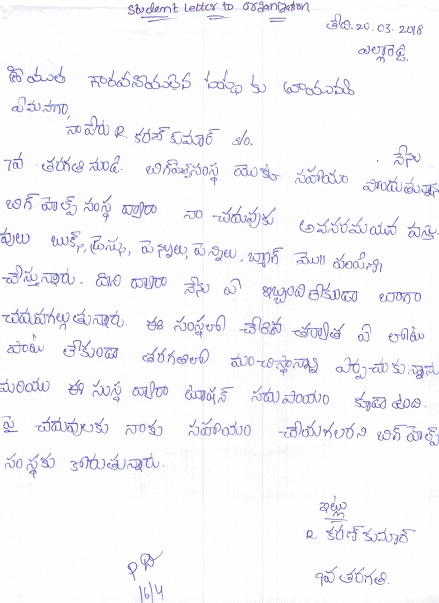 Student Letter to organization
తేది.20.03.2018
ఎల్లారెడ్డి.
గౌరవనీయులైన సంస్థ కు వ్రాయునది
ఏమనగా,
నా పేరు R. కరణ్ కుమార్ s/o. నేను
7వ తరగతి నుండి. బిగ్‌హెల్ప్‌సంస్థ యొక్క సహాయం పొందుతున్నాను
బిగ్ హెల్ప్ సంస్థ ద్వారా నా చదువుకు అవసరమయిన వస్తు
వులు బుక్స్, డ్రెస్సు, పెన్నులు, పెన్సిలు, బ్యాగ్ మొ॥ పంపిణి
చేస్తున్నారు. దీని ద్వారా నేను ఏ ఇబ్బంది లేకుండా బాగా
చదువగల్గుతున్నాను. ఈ సంస్థలో చేరిన తర్వాత ఏ లోటు
పాటు లేకుండా తరగతిలో మంచిస్థానాన్ని ఏర్పచుకున్నాను
మరియు ఈ సంస్థ ద్వారా టూషన్ సదుపాయం కూడా ఉంది.
పై చదువులకు నాకు సహాయం చేయగలరని బిగ్ హెల్ప్
సంస్థకు కోరుతున్నారు.
ఇట్లు
R. కరణ్ కుమార్
9వ తరగతి.
16/4